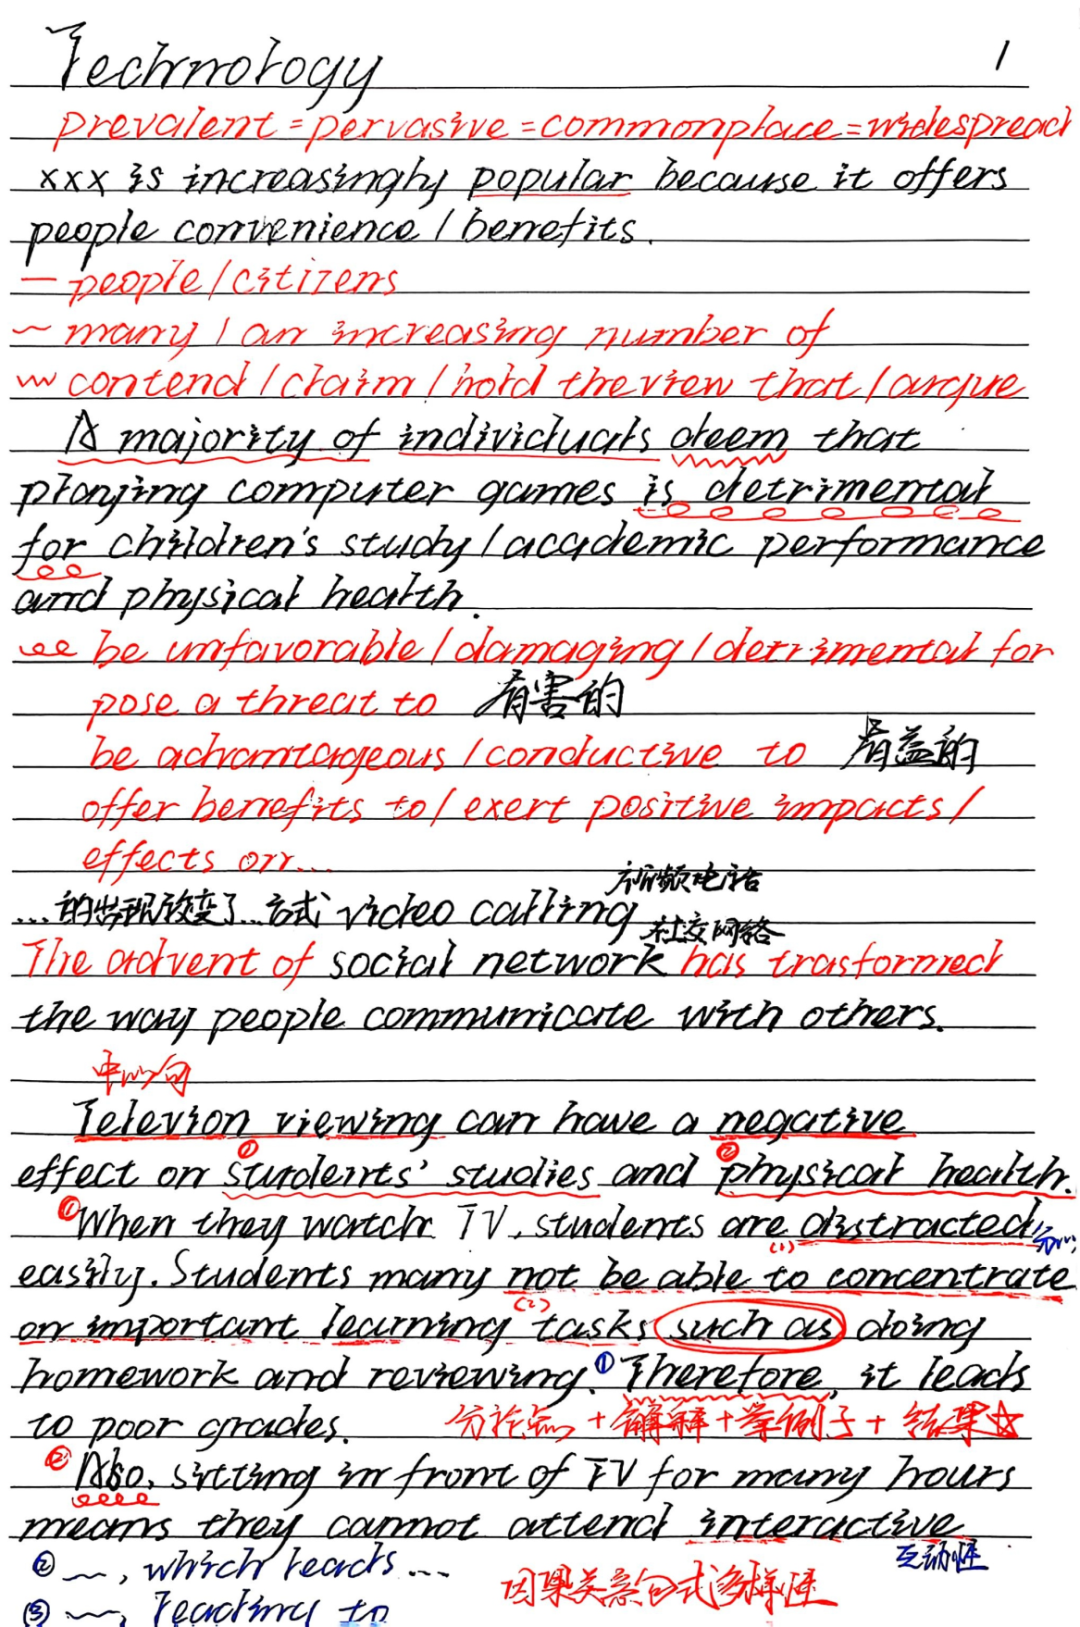 Technology 1
prevalent = pervasive = commonplace = widespread
xxx is increasingly popular because it offers
people convenience / benefits.
— people / citizens
~ many / an increasing number of
contend / claim / hold the view that / argue
A majority of individuals deem that
playing computer games is detrimental
for children's study / academic performance
and physical health.
be unfavorable / damaging / detrimental for
pose a threat to 有害的
be advantageous / conductive to 有益的
offer benefits to / exert positive impacts /
effects on...
视频电话
...的出现改变了...方式 video calling
社交网络
The advent of social network has trasformed
the way people communicate with others.
中心句
Televion viewing can have a negative
effect on ①students' studies and ②physical health.
①When they watch TV, students are distracted
(1)
easily. Students many not be able to concentrate
(2)
on important learning tasks such as doing
homework and reviewing. ①Therefore, it leads
to poor grades. 分论点 + 解释 + 举例子 + 结果☆
②Also, sitting in front of TV for many hours
means they cannot attend interactive
互动性
② ~, which leads ...
因果关系句式多样性
③ ~, leading to